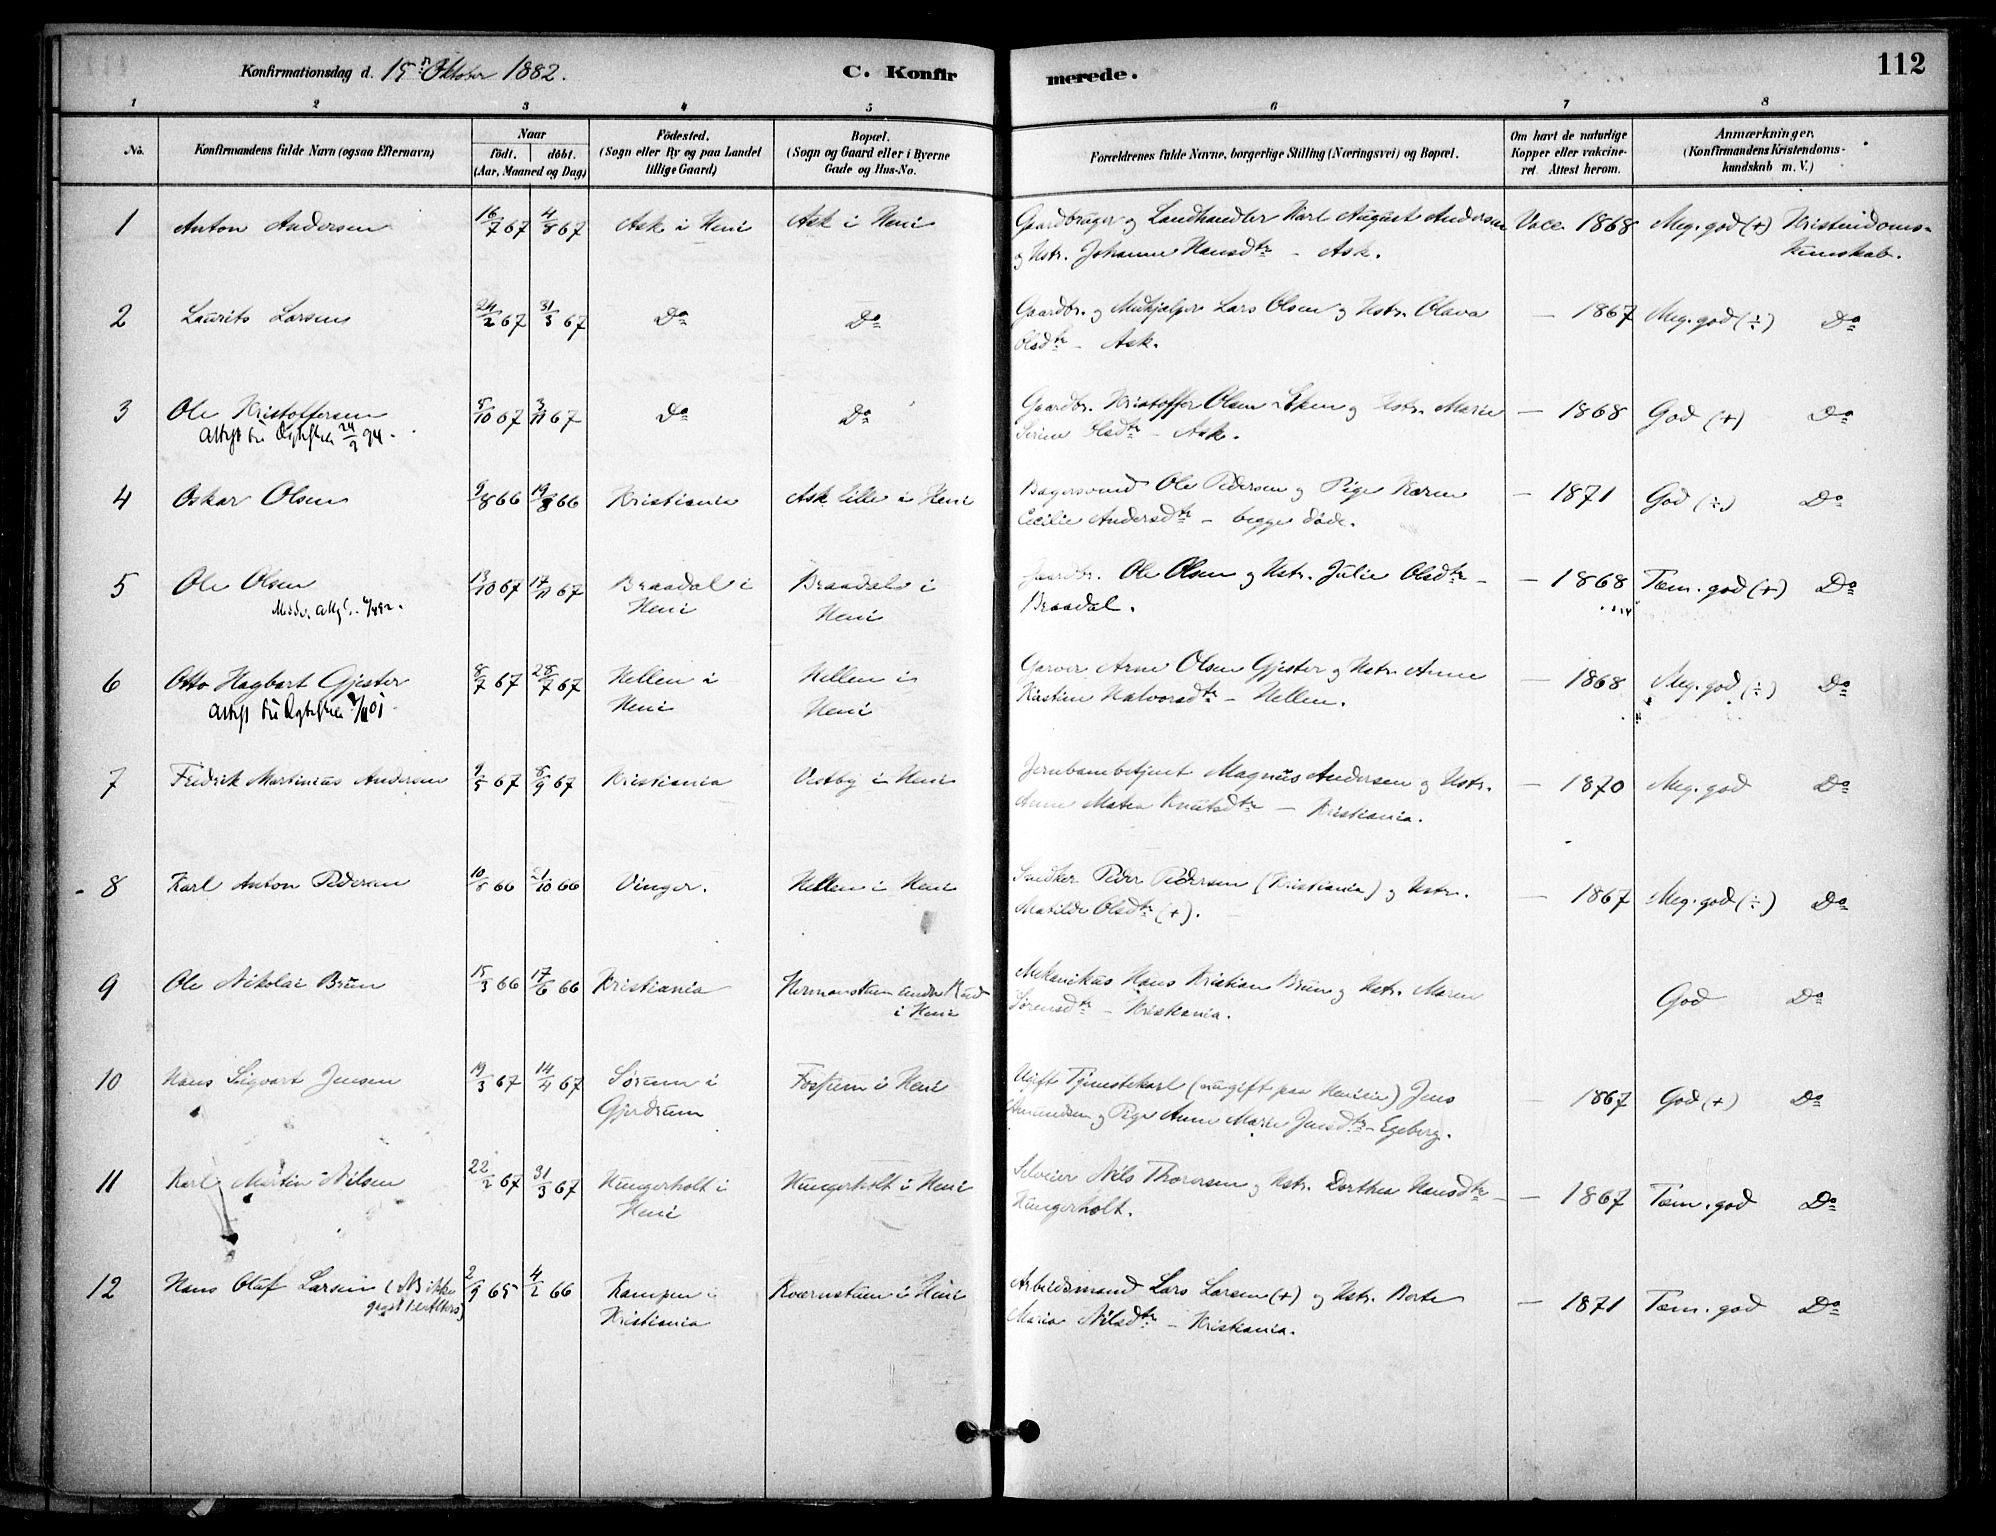 Konfirmationsdag d. 15n Oktober 1882. C. Konfirmerede. 112
1 2 3 4 5 6 7 8
No. Konfirmandens fulde Navn (ogsaa Efternavn)
Naar
födt. döbt.
(Aar, Maaned og Dag)
Födested.
(Sogn eller By og paa Landet
tillige Gaard)
Bopæl.
(Sogn og Gaard eller i Byerne
Gade og Hus-No.
Forældrenes fulde Navne, borgerlige Stilling (Næringsvei) og Bopæl.
Om havt de naturlige
Kopper eller vakcine-
ret. Attest herom.
Anmærkninger.
(Konfirmandens Kristendoms-
kundskab m. V.)
1 Anton Andersen 16/7 67 4/8 67 Ask i Heni Ask i Heni Gaardbruger og Landhandler Karl August Andersen Vacc. 1868 Meg. god (+) Kristendoms-
og Hstr. Johanne Hansdtr – Ask. kunskab.
2 Laurits Larsen 24/2 67 31/3 67 Do Do Gaardbr. og Lars Olsen og Hstr. Olava – 1867 Meg. god (÷) Do
Olsdtr – Ask.
3 Ole Kristoffersen 5/10 67 3/11 67 Do Do Gaardbr. Kristoffer Olsen og Hstr. Marie – 1868 God (+) Do
Attest til 24/2 94. Olsdtr – Ask.
4 Oskar Olsen 9/8 66 19/8 66 Kristiania Ask lille i Heni Bagersvend Ole Pedersen og Pige Karen – 1871 God (÷) Do
Cecilie Andersdtr – begge døde.
5 Ole Olsen 13/10 67 17/11 67 Braadal i Braadal i Gaardbr. Ole Olsen og Hstr. Julie Olsdtr – – 1868 Tem. god (+) Do
Heni Heni Braadal.
6 Otto Hagbart Gjester 8/7 67 28/7 67 Hellen i Hellen i Garver Arne Olsen Gjester og Hstr. Anne – 1868 Meg. god (÷) Do
Attest til Heni Heni Kirstine Halvorsdtr – Hellen.
7 Fredrik Martinius Andersen 9/5 67 8/9 67 Kristiania Vestby i Heni Jernbanebetjent Magnus Andersen og Hstr. – 1870 Meg. god Do
Anne Matea Knutsdtr – Kristiania.
8 Karl Anton Pedersen 10/8 66 21/10 66 Vinger. Hellen i Heni Snedker Peder Pedersen (Kristiania) og Hstr. – 1867 Meg. god (÷) Do
Matilde Olsdtr (+).
9 Ole Nikolai Brun 15/3 66 17/6 66 Kristiania under Mekanikus Hans Kristian Brun og Hstr. Maren God Do
i Heni Sørensdtr – Kristiania.
10 Hans Sigvart Jensen 19/3 67 14/4 67 Sørum i i Heni Ugift Tjenestekarl (nu gift paa ) Jens – 1867 God (+) Do
Gjerdrum Amundsen og Pige Anne Marie Jensdtr – Egeberg.
11 Karl Martin Nilsen 22/2 67 31/3 67 Hungerholt i Hungerholt i Heni Selveier Nils Thoresen og Hstr. Dorthea Hansdtr – – 1867 Tem. god Do
Heni Hungerholt.
12 Hans Olaf Larsen (NB ikke 2/9 65 4/2 66 Kampen i Kværnstuen i Heni Arbeidsmand Lars Larsen (+) og Hstr. Berte – 1871 Tem. god Do
gaaet til Alters) Kristiania Maria Nilsdtr – Kristiania.